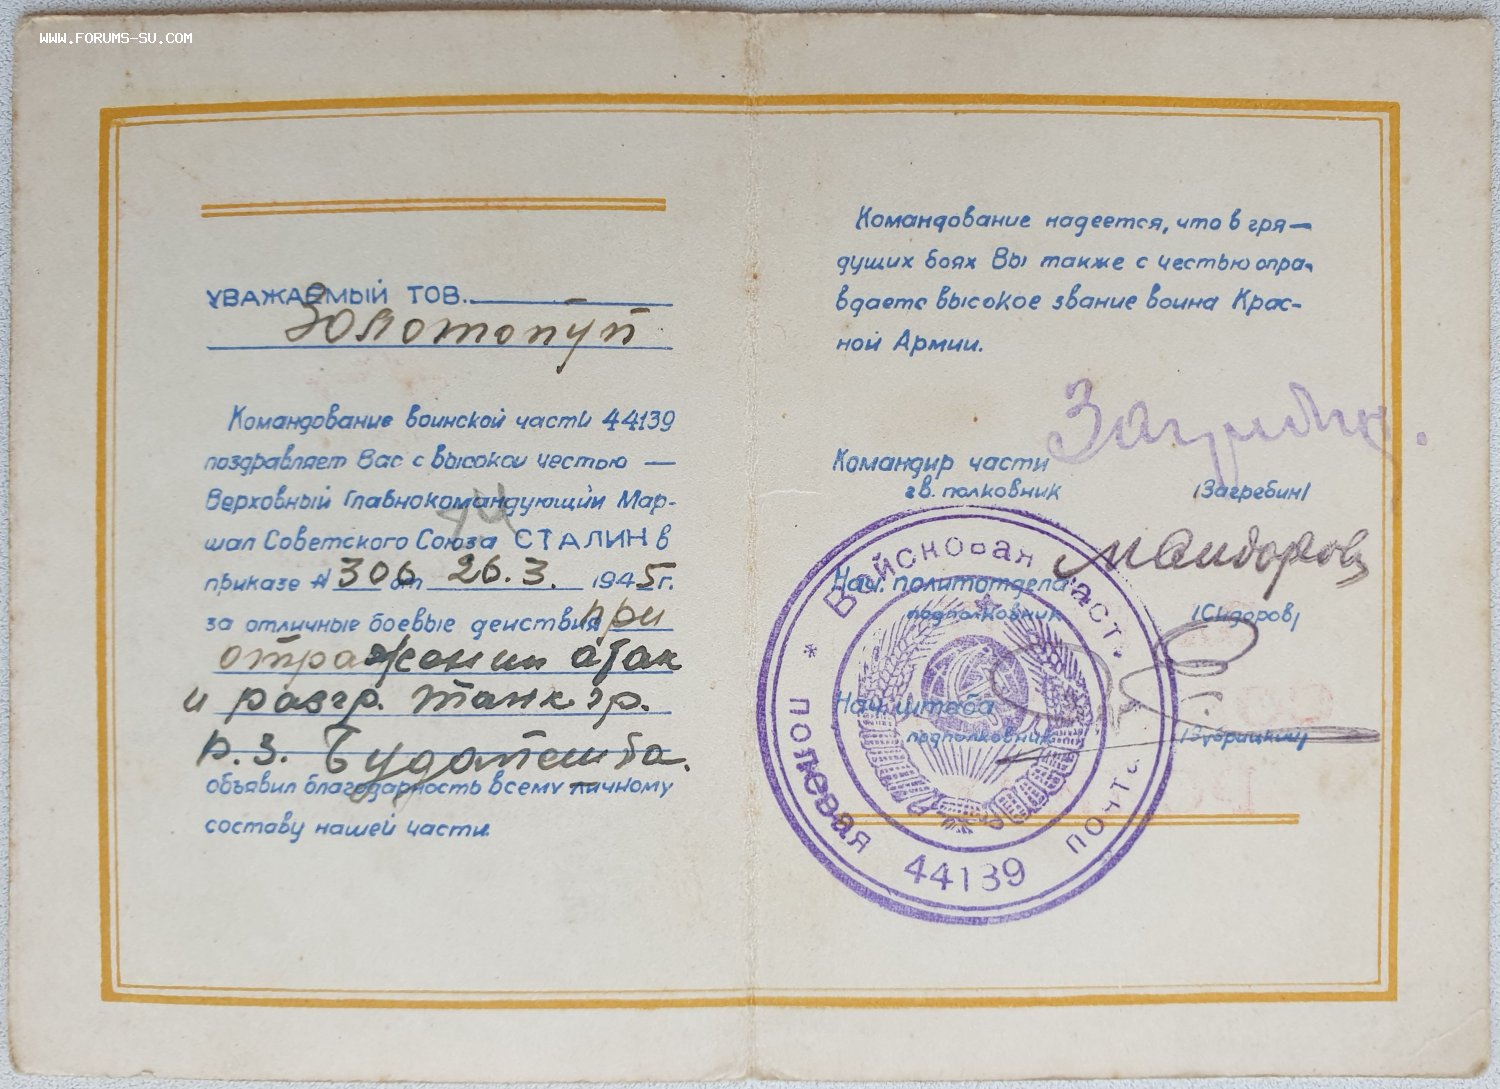 WWW.FORUMS-SU.COM
УВАЖАЕМЫЙ ТОВ.
Золотопуп
Командование воинской части 44139
поздравляет Вас с высокой честью —
Верховный Главнокомандующий Мар-
шал Советского Союза СТАЛИН в
приказе № 306 от 26.3. 1945 г.
за отличные боевые действия при
отражении атак
и разгр. танк. гр.
р. з. Будапешта.
объявил благодарность всему личному
составу нашей части.
Командование надеется, что в гря-
дущих боях Вы также с честью опра-
вдаете высокое звание воина Крас-
ной Армии.
Загребин.
Командир части
гв. полковник /Загребин/
Сидоров
Нач. политотдела
подполковник /Сидоров/
Нач. штаба
подполковник /Зубрицкий/
Войсковая часть
полевая почта
44139